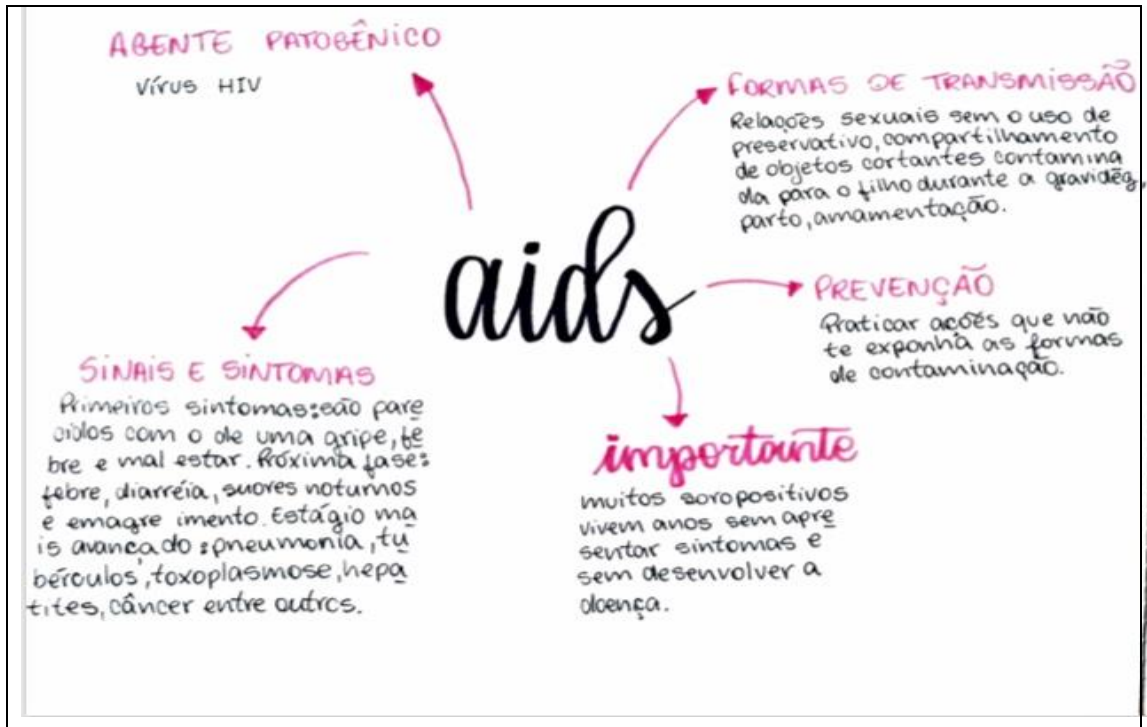 AGENTE PATOGÊNICO
Vírus HIV
FORMAS DE TRANSMISSÃO
Relações sexuais sem o uso de
preservativo, compartilhamento
de objetos cortantes contamina
da para o filho durante a gravidêz,
parto, amamentação.
aids
PREVENÇÃO
Praticar ações que não
te exponha as formas
de contaminação.
SINAIS E SINTOMAS
Primeiros sintomas: são pare
cidos com o de uma gripe, fe
bre e mal estar. Próxima fase:
febre, diarréia, suores noturnos
e emagre imento. Estágio ma
is avançado: pneumonia, tu
bérculos, toxoplasmose, hepa
tites, câncer entre outros.
importante
muitos soropositivos
vivem anos sem apre
sentar sintomas e
sem desenvolver a
doença.